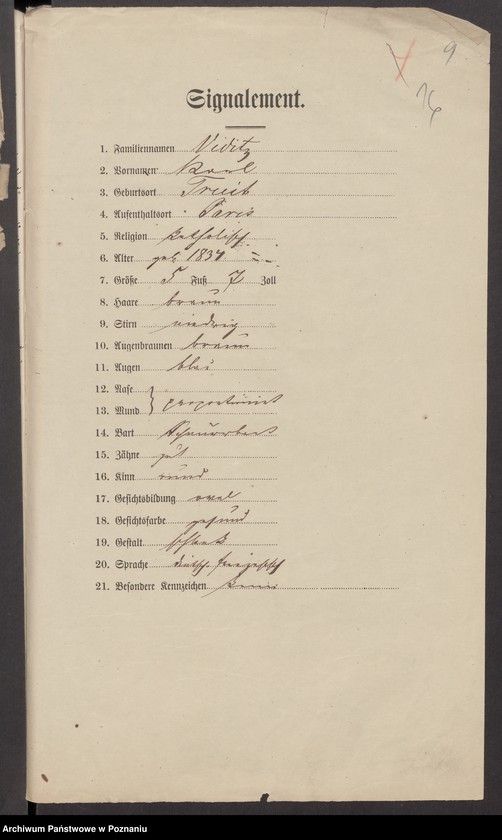 9
16
Signalement.
1. Familiennamen Viditz
2. Vornamen Karl
3. Geburtsort
4. Aufenthaltsort Paris
5. Religion katholisch
6. Alter geb. 1834
7. Größe 5 Fuß 7 Zoll
8. Haare braun
9. Stirn niedrig
10. Augenbraunen braun
11. Augen blau
12. Nase
13. Mund } proportionirt
14. Bart Schnurrbart
15. Zähne gut
16. Kinn rund
17. Gesichtsbildung oval
18. Gesichtsfarbe gesund
19. Gestalt schlank
20. Sprache
21. Besondere Kennzeichen keine
Archiwum Państwowe w Poznaniu